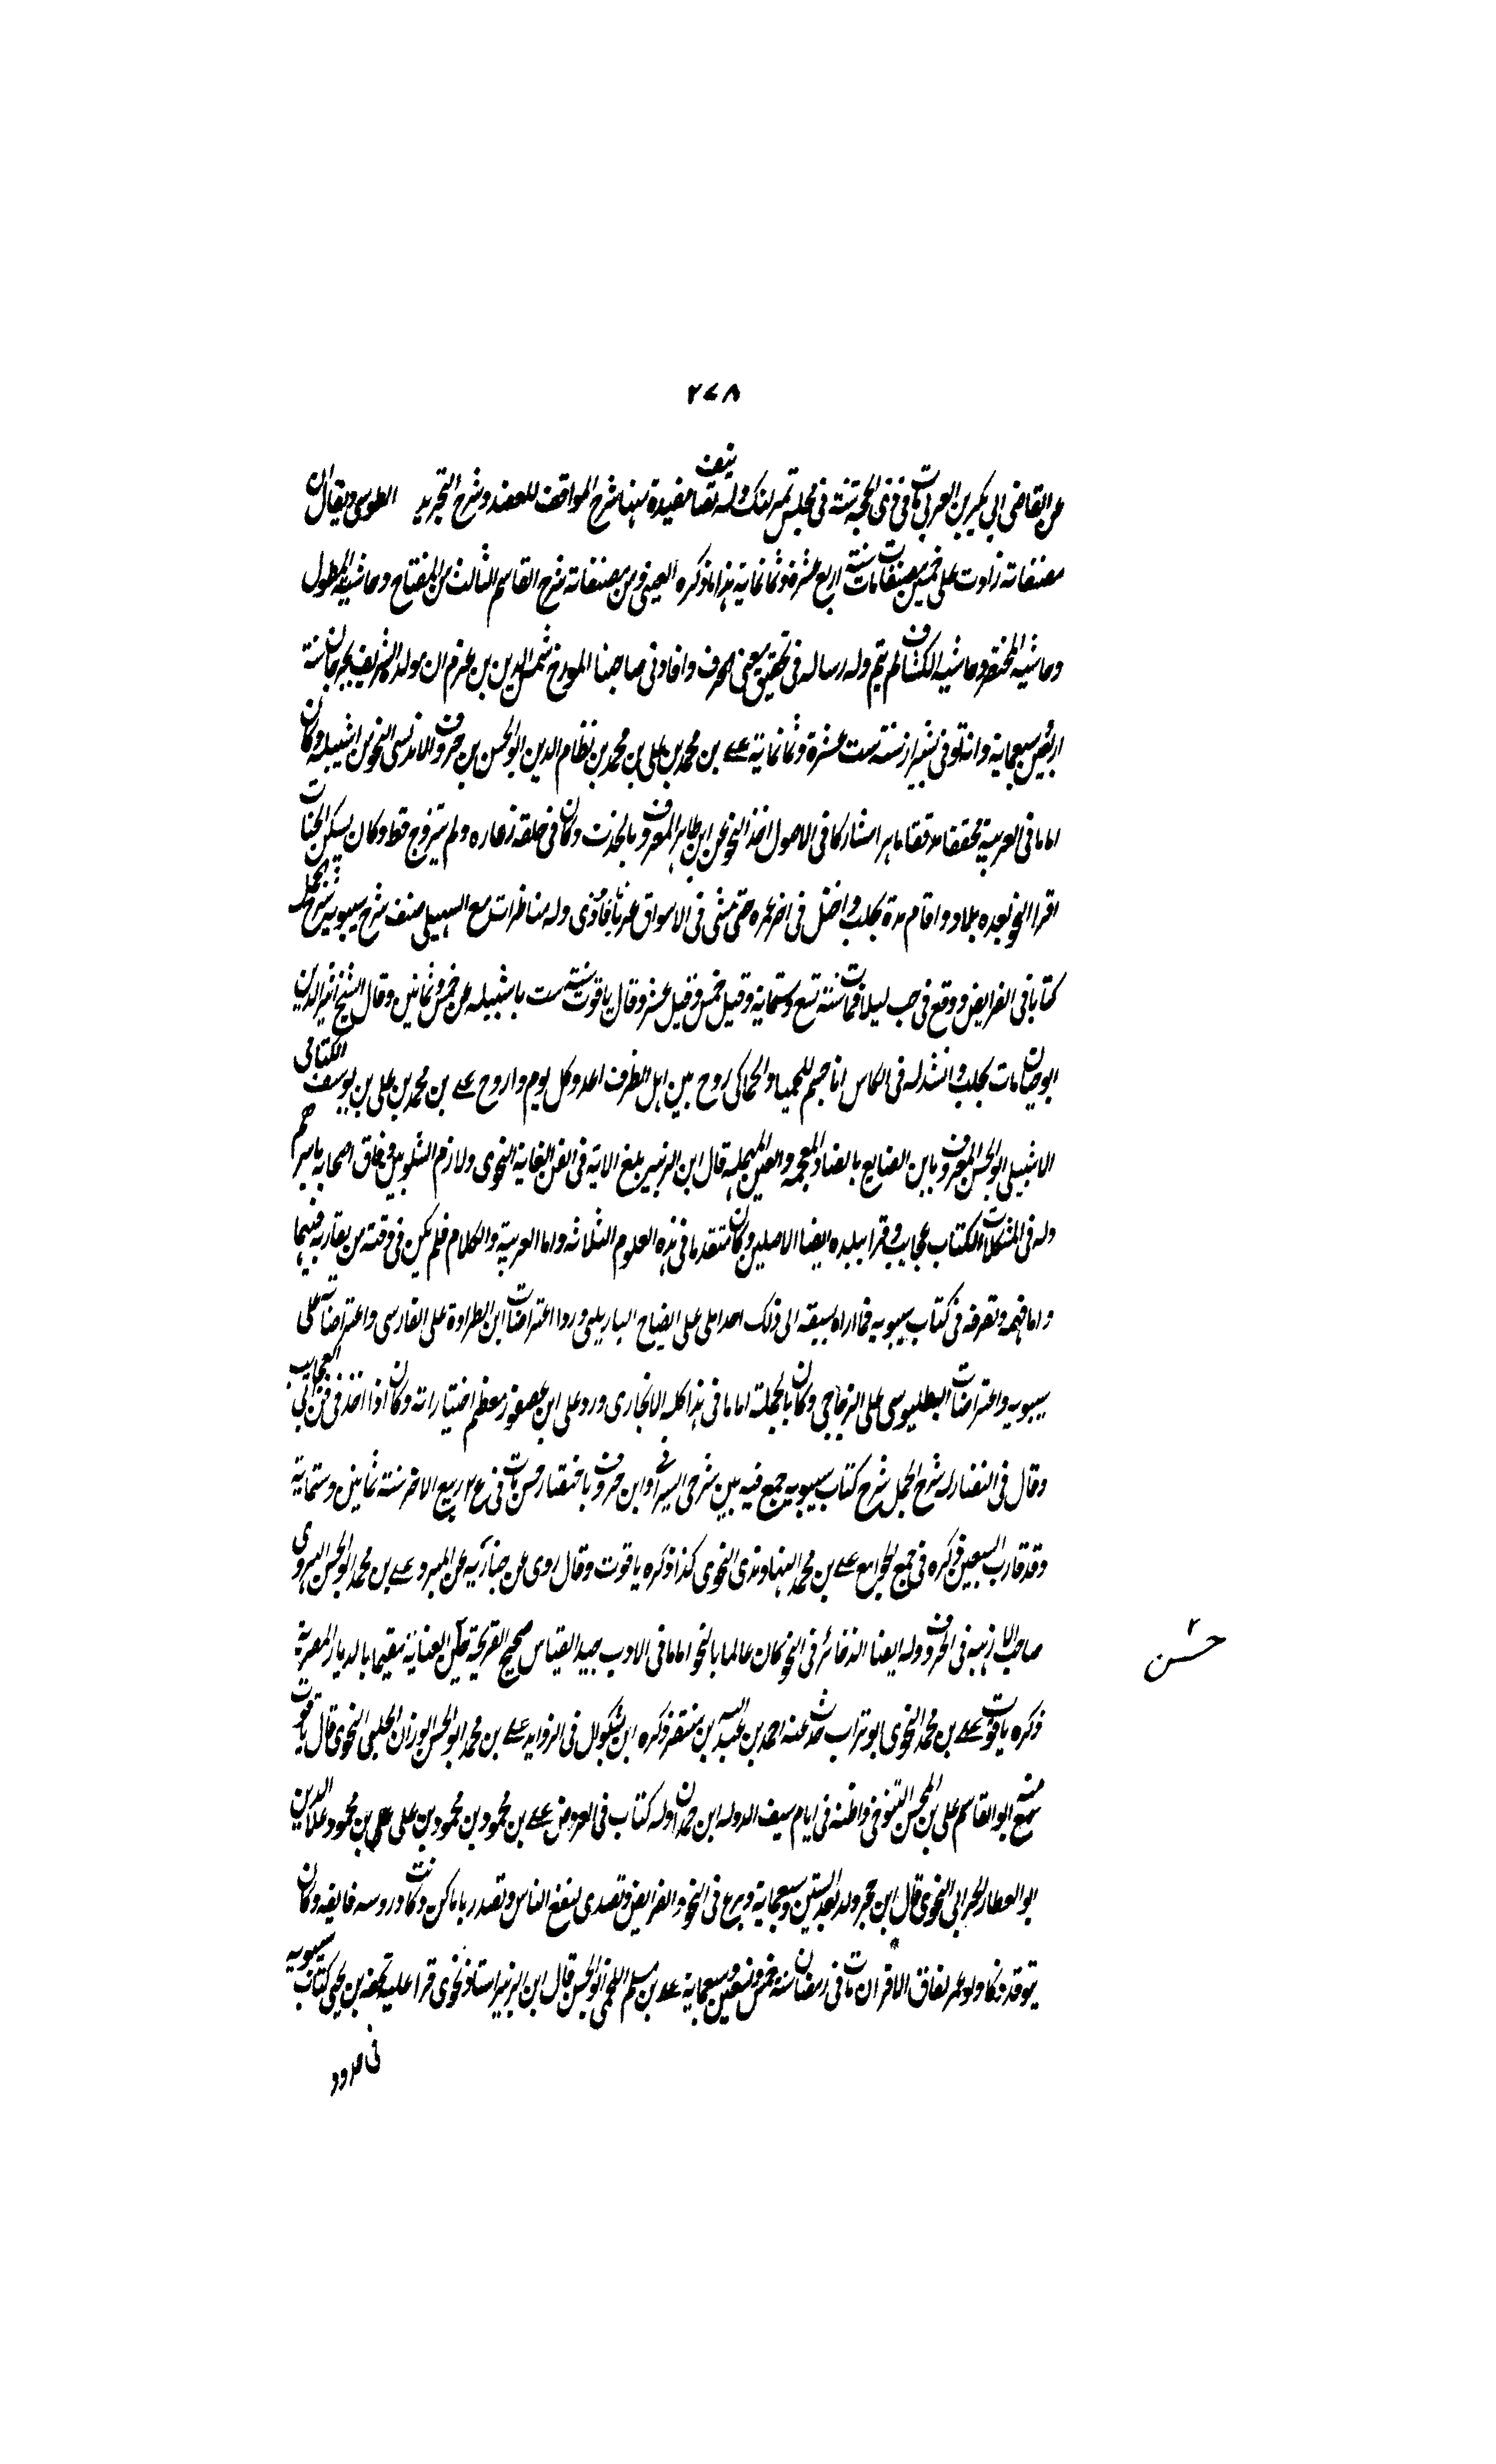 ٢٧٨
عن القاضى ابى بكر بن العربى مات فى ذى الحجة سنة فى مجلس تمرلنك وله تصانيف مفيدة منها شرح المواقف للعضد وشرح التجريد الطوسى ويقال ان
مصنفاته زادت على خمسين مصنفا مات سنة اربع عشرة وثمانماية هذا ما ذكره العينى ومن مصنفاته شرح القاسم الثالث من المفتاح وحاشية المطول
وحاشية المختصر وحاشية الكشاف لم يتم وله رساله فى تحقيق معنى الحرف وافادنى صاحبنا المورخ شمس الدين بن عزم ان مولد الشريف بجرجان سنة
اربعين سبعماية وانه توفى بشيراز سنة ست عشرة وثمانماية على بن محمد بن على بن محمد بن نظام الدين ابو الحسن بن خروف الاندلسى النحوى من اشبيليه وكان
اماما فى العربية محققا مدققا ماهرا مشاركا فى الاصول اخذ النحو عن ابن طاهر المعروف بالخدب وكان فى خلقه زعاره ولم يتزوج قط وكان يسكن الخانات
اقرا النحو بعده بلاد واقام مدة بحلب واختل فى اخر عمره حتى مشى فى الاسواق عريانا وله مناظرات مع السهيلى صنف شرح سيبويه شرح الجمل
كتابا فى الفرايض ووقع فى جب ليلا فمات سنة تسع وستماية وقيل خمس وقيل عشر وقال ياقوت سنة ست باشبيله عن خمس وثمانين وقال الشيخ اثير الدين
ابو حيان مات بحلب وانشد له فى الكاس انا جسم للحميا والحميا لى روح بين اهل الظرف اغدو كل يوم واروح على بن محمد بن على بن يوسف الكتامى
الاشبيلى ابو الحسن المعروف بابن الضايع بالضاد المعجمه والعين المهمله قال ابن الزبير بلغ الاية فى الفن الغاية النحوى ولازم الشلوبين وفاق اصحابه باسرهم
وله فى المشكلات الكتاب عجايب وقرا ببلده ايضا الاصلين وكان متقدما فى هذه العلوم الثلاثه واما العربية والكلام فلم يكن فى وقته من يقاربه فيهما
واما فهمه وتصرفه فى كتاب سيبويه فما اراه سبقه الى ذلك احد املى على ايضاح ورد اعتراضات ابن الطراوة على الفارسى واعتراضاته على
سيبويه واعتراضات البطليوسى على الزجاجى وكان بالجملة اماما فى هذا كله لا يجارى ورد على ابن عصفور معظم اختياراته وكان اذا اخذ فى فن اتى بالعجايب
وقال فى النضار له شرح الجمل شرح كتاب سيبويه جمع فيه بين شرحى السيرافى وابن خروف باختصار حسن مات فى ربيع الاخر سنة ثمانين وستماية
وقد قارب السبعين ذكره فى جمع الجوامع على بن محمد النهاوندى النحوى كذا ذكره ياقوت وقال روى عن عن المبرد على بن محمد ابو الحسن الهروى
صاحب الازهيه فى الحروف وله ايضا الذخائر فى النحو كان عالما بالنحو اماما فى الادب جيد القياس صحيح القريحة حسن العناية مقيما بالديار المصرية
حسن ٢
ذكره ياقوت على بن محمد النحوى ابو تراب حدث عنه احمد بن عبيد الله بن منتصر ذكره ابن بشكوال فى الزوايد على بن محمد ابو الحسن الوزان الحلبى النحوى قال ياقوت
سمع منه ابو القاسم على بن المحسن التنوخى واظنه فى ايام سيف الدوله ابن حمدان وله كتاب فى العروض على بن محمود بن محمود بن على على بن محمود علاء الدين
ابو العطار الحرانى النحوى قال ابن حجر ولد بعد الستين وسبعماية وبرع فى النحو والفرايض وتصدى لنفع الناس وتصدر باماكن وكانت دروسه فايقه وكان
يتوقد ذكا ولو عمر لفاق الاقران مات فى رمضان سنة خمس وتسعين وسبعماية على بن مسلم اللخمى ابو الحسن قال ابن الزبير استاذ نحوى قرا عليه بن يحيى كتاب سيبويه
فى حدود